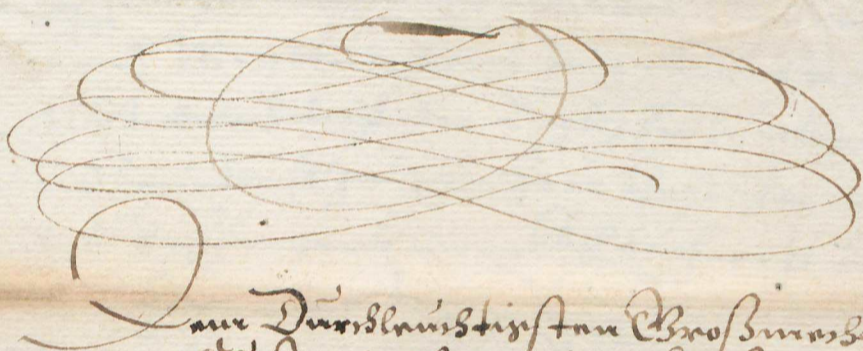 Dem Durchleuchtigsten Großmech